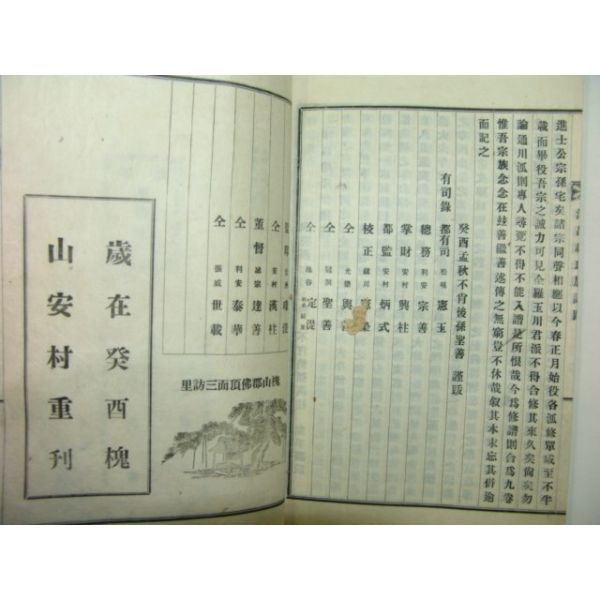 進士公宗孫宅矣諸宗同聲相應以今春正月始役各派修單咸至不半
載而畢役吾宗之誠力可見全羅玉川君派不得合修其來久矣尙矣勿
論通川派則專人尋覔不得不能入譜是所恨哉今爲修譜則合爲九卷
惟吾宗族念念在玆善繼善述傳之無窮豈不休哉敍其本末忘其僭逾
而記之
癸酉孟秋不肖後孫聖善 謹跋
有司錄
都有司 憲玉
總務 利安 宗善
掌財 安村 興柱
都監 安村 炳式
校正
仝
仝 聖善
仝 定湜
仝 安村 漢柱
董督 達善
仝 利安 泰華
仝 世載
槐山郡佛頂面三訪里
歲在癸酉槐
山安村重刊